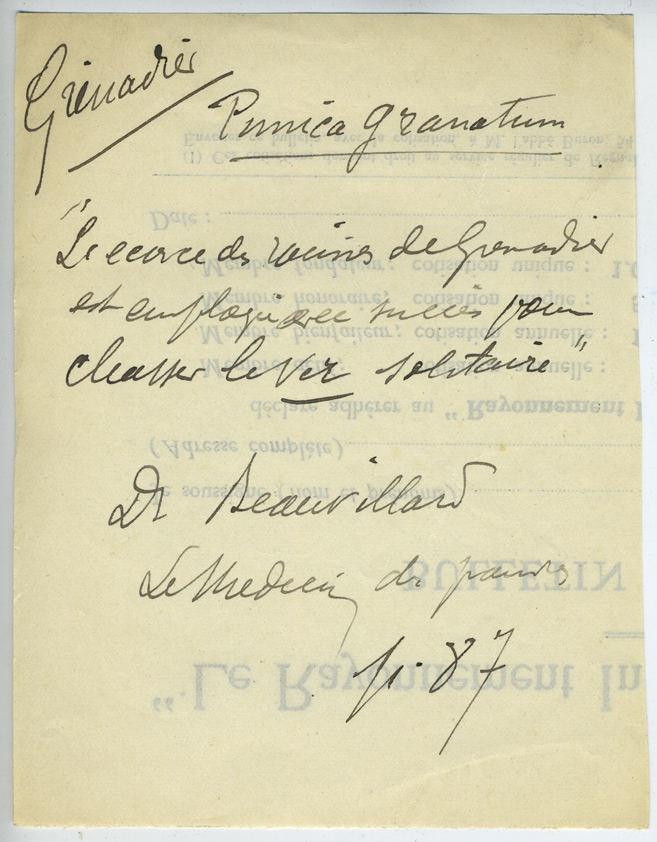 Grenadier
Punica Granatum
"L'ecorce des racines de Grenadier
est employé avec succès pour
chasser le Ver solitaire"
Dr Beauvillard
Le Medecin des pauvres
p. 87